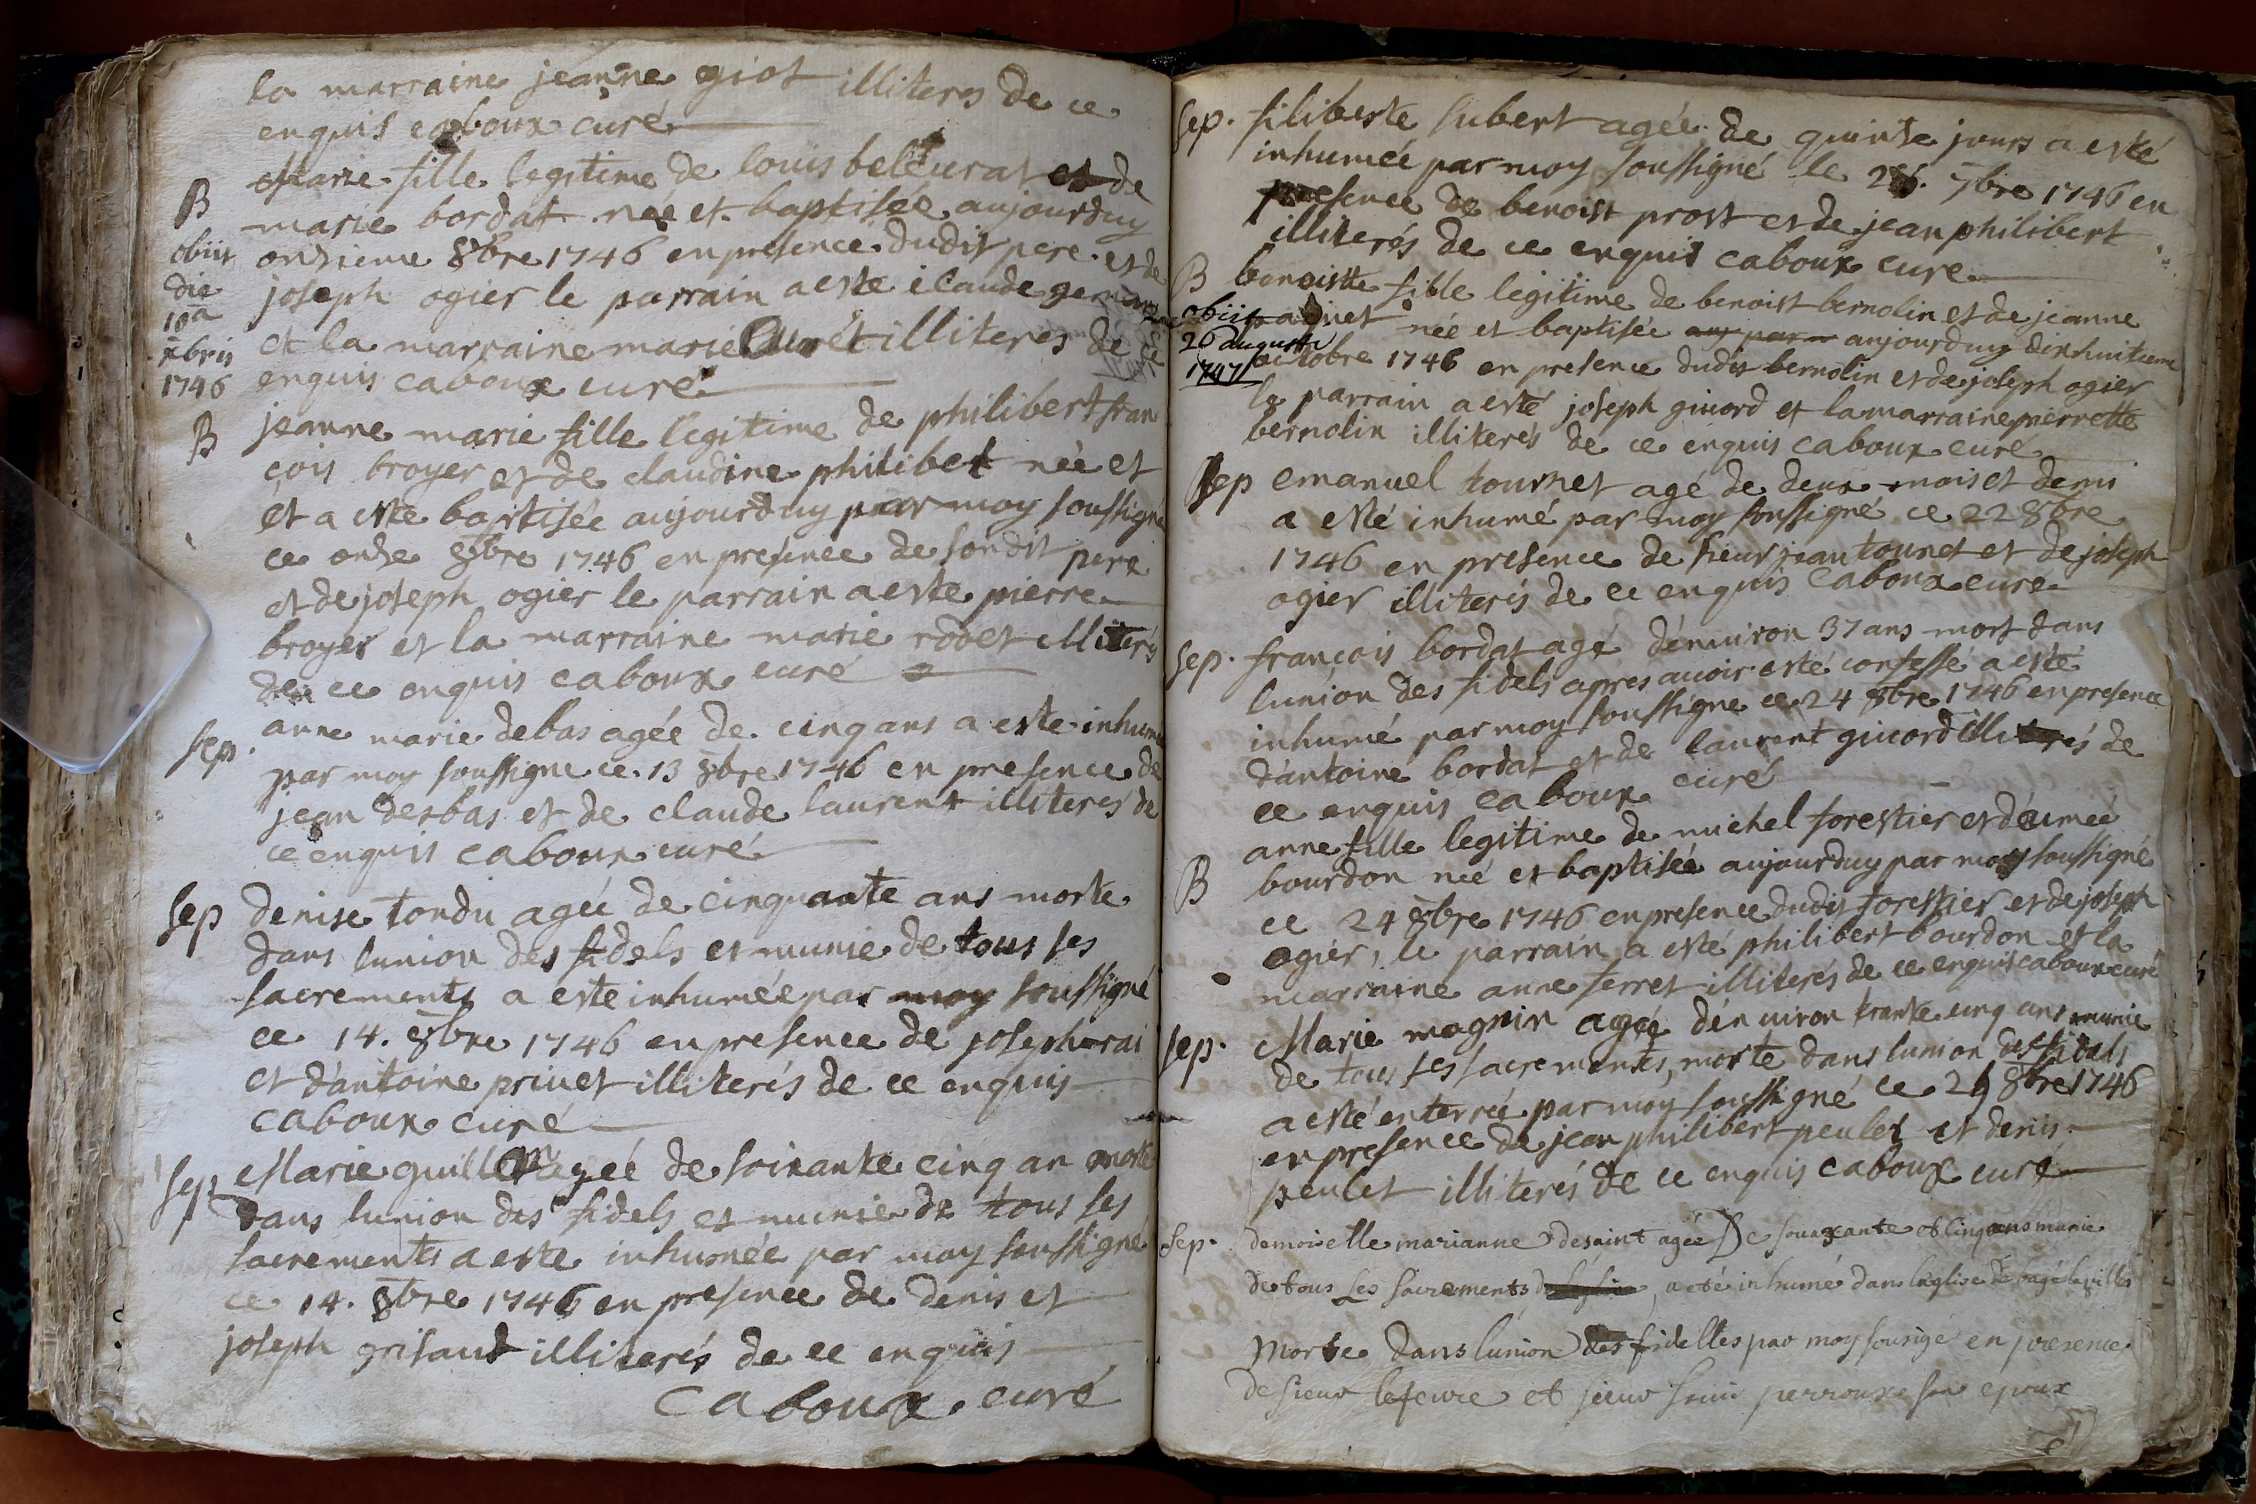 la marraine jeanne giot illiteres de ce
enquis caboux curé
B
Marie fille legitime de louis belleurat et de
marie bordat née et baptisée aujourduy
obiit
onzieme 8bre 1746 en presence dudit pere et de
die
10a
joseph ogier le parrain a esté claude
xbris
et la marraine marie illiteres de ce
1746
enquis caboux curé
B
jeanne marie fille legitime de philibert fran
çois broyer et de claudine philibet née et
et a esté baptisée aujourduy par moy soussigné
ce onze 8bre 1746 en presence de sondit pere
et de joseph ogier le parrain a esté pierre
broyer et la marraine marie rodet illiterés
de ce enquis caboux curé
sep.
anne marie debas agée de cinq ans a esté inhumé
par moy soussigné ce 13 8bre 1746 en presence de
jean desbas et de claude laurent illiterés de
ce enquis caboux curé
sep
denise tondu agée de cinquante ans morte
dans lunion des fidels et munie de tous ses
sacrements a esté inhumée par moy soussigné
ce 14. 8bre 1746 en presence de joseph rai
et d'antoine privet illiterés de ce enquis
caboux curé
sep
Marie agée de soixante cinq an morte
dans lunion des fidels et munie de tous ses
sacrements a esté inhumée par moy soussigné
ce 14. 8bre 1746 en presence de denis et
joseph grisaud illiterés de ce enquis
caboux curé
sep. filiberte subert agée de quinze jours a esté
inhumée par moy soussigné le 7bre 1746 en
presence de benoist prost et de jean philibert
illiterés de ce enquis caboux curé
B benoiste fille legitime de benoist bernolin et de jeanne
obiit
née et baptisée aujourduy dixhuitieme
26 augusti
octobre 1746 en presence dudit bernolin et de joseph ogier
1747
le parrain a esté joseph giuord et la marraine pierrette
bernolin illiterés de ce enquis caboux curé
sep emanuel tournet agé de deux mois et demi
a esté inhumé par moy soussigné ce 22 8bre
1746 en presence de sieur jean tournet et de joseph
ogier illiterés de ce enquis caboux curé
sep. françois bordat agé denuiron 37 ans mort dans
lunion des fidels apres auoir esté confessé a esté
inhumé par moy soussigne ce 24 8bre 1746 en presence
d'antoine bordat et de laurent giuord illiterés de
ce enquis caboux curé
anne fille legitime de michel forestier et d'eumeé
B bourdon née et baptisée aujourduy par moy soussigné
ce 24 8bre 1746 en presence dudit forestier et de joseph
ogier, le parrain a esté philibert bourdon et la
marraine anne ferret illiterés de ce enquis caboux curé
sep. Marie magnin agée denuiron trante cinq ans munie
de tous ses sacrements, morte dans lunion des fidels
a esté enterrée par moy soussigné ce 8bre 1746
en presence de jean philibert peulet et denis
peulet illiterés de ce enquis caboux curé
sep. demoiselle marianne desaint agée De soixante et cinq ans munie
de tous Les sacrements, a été inhumé dans léglise de bagé la ville
Morte dans lunion des fidelles par moy sousigé en presence
de sieur lefeure et sieur perroux son epoux